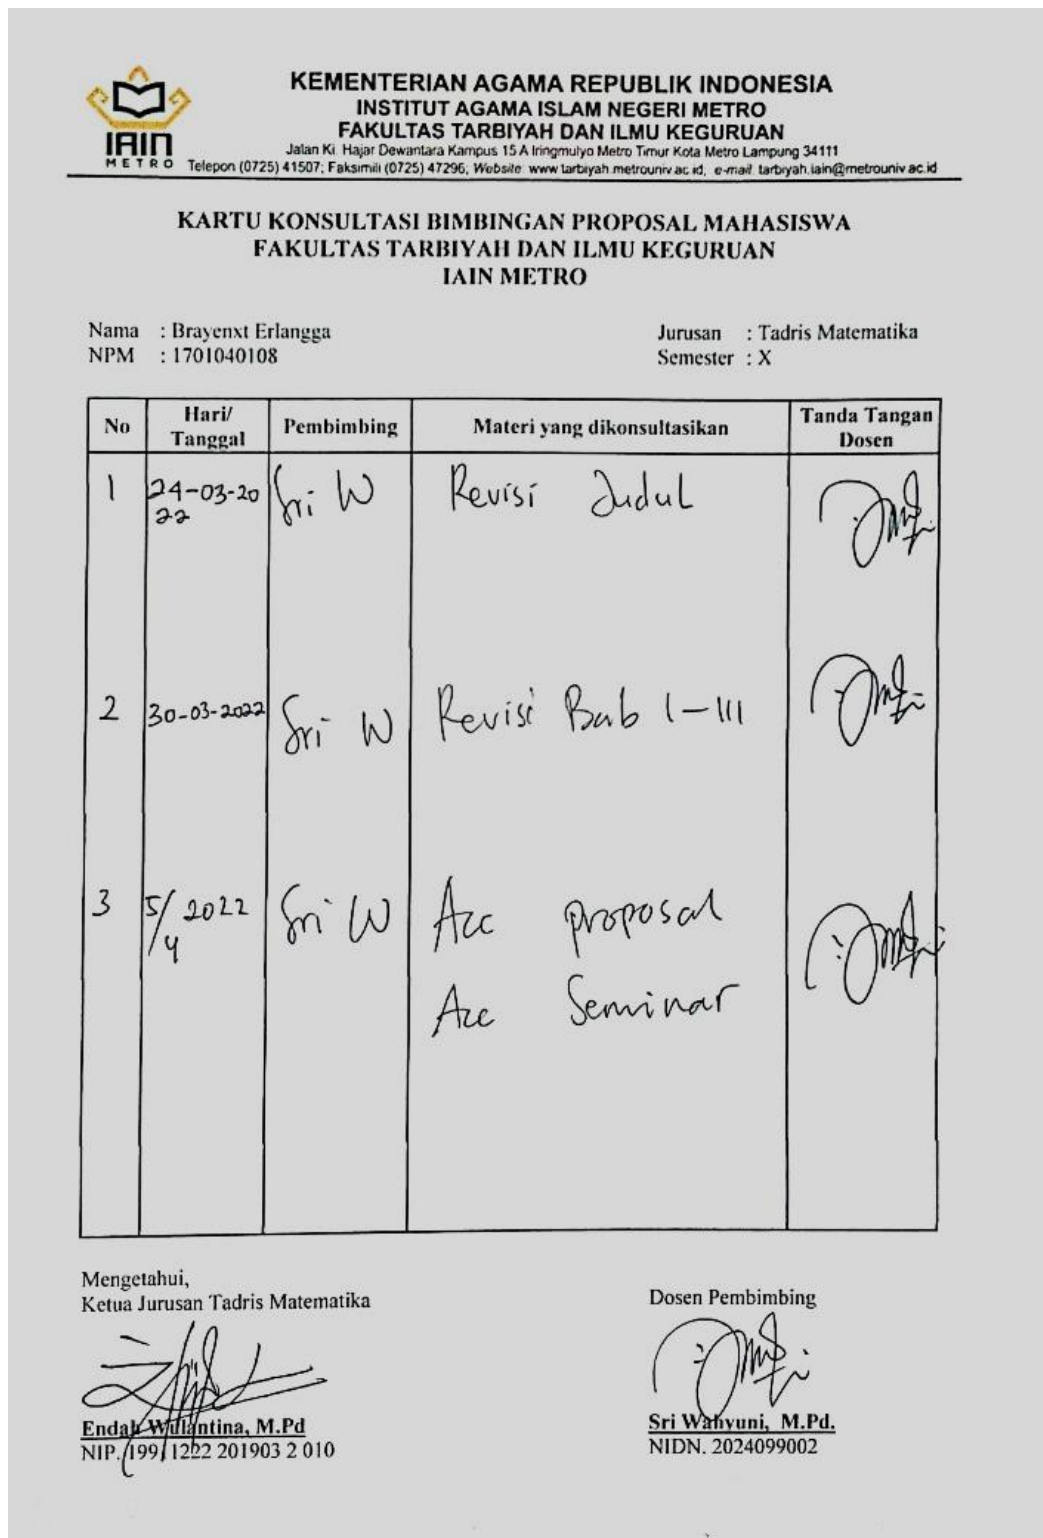 IAIN
METRO
KEMENTERIAN AGAMA REPUBLIK INDONESIA
INSTITUT AGAMA ISLAM NEGERI METRO
FAKULTAS TARBIYAH DAN ILMU KEGURUAN
Jalan Ki. Hajar Dewantara Kampus 15 A Iringmulyo Metro Timur Kota Metro Lampung 34111
Telepon (0725) 41507; Faksimili (0725) 47296; Website: www.tarbiyah.metrouniv.ac.id, e-mail: tarbiyah.iain@metrouniv.ac.id
KARTU KONSULTASI BIMBINGAN PROPOSAL MAHASISWA
FAKULTAS TARBIYAH DAN ILMU KEGURUAN
IAIN METRO
Nama : Brayenxt Erlangga Jurusan : Tadris Matematika
NPM : 1701040108 Semester : X
No Hari/ Tanggal Pembimbing Materi yang dikonsultasikan Tanda Tangan Dosen
1 24-03-20 22 Sri W Revisi Judul
2 30-03-2022 Sri W Revisi Bab I-III
3 5/4 2022 Sri W Acc proposal
Acc Seminar
Mengetahui,
Ketua Jurusan Tadris Matematika
Dosen Pembimbing
Endah Wulantina, M.Pd
NIP. 19911222 201903 2 010
Sri Wahyuni, M.Pd.
NIDN. 2024099002